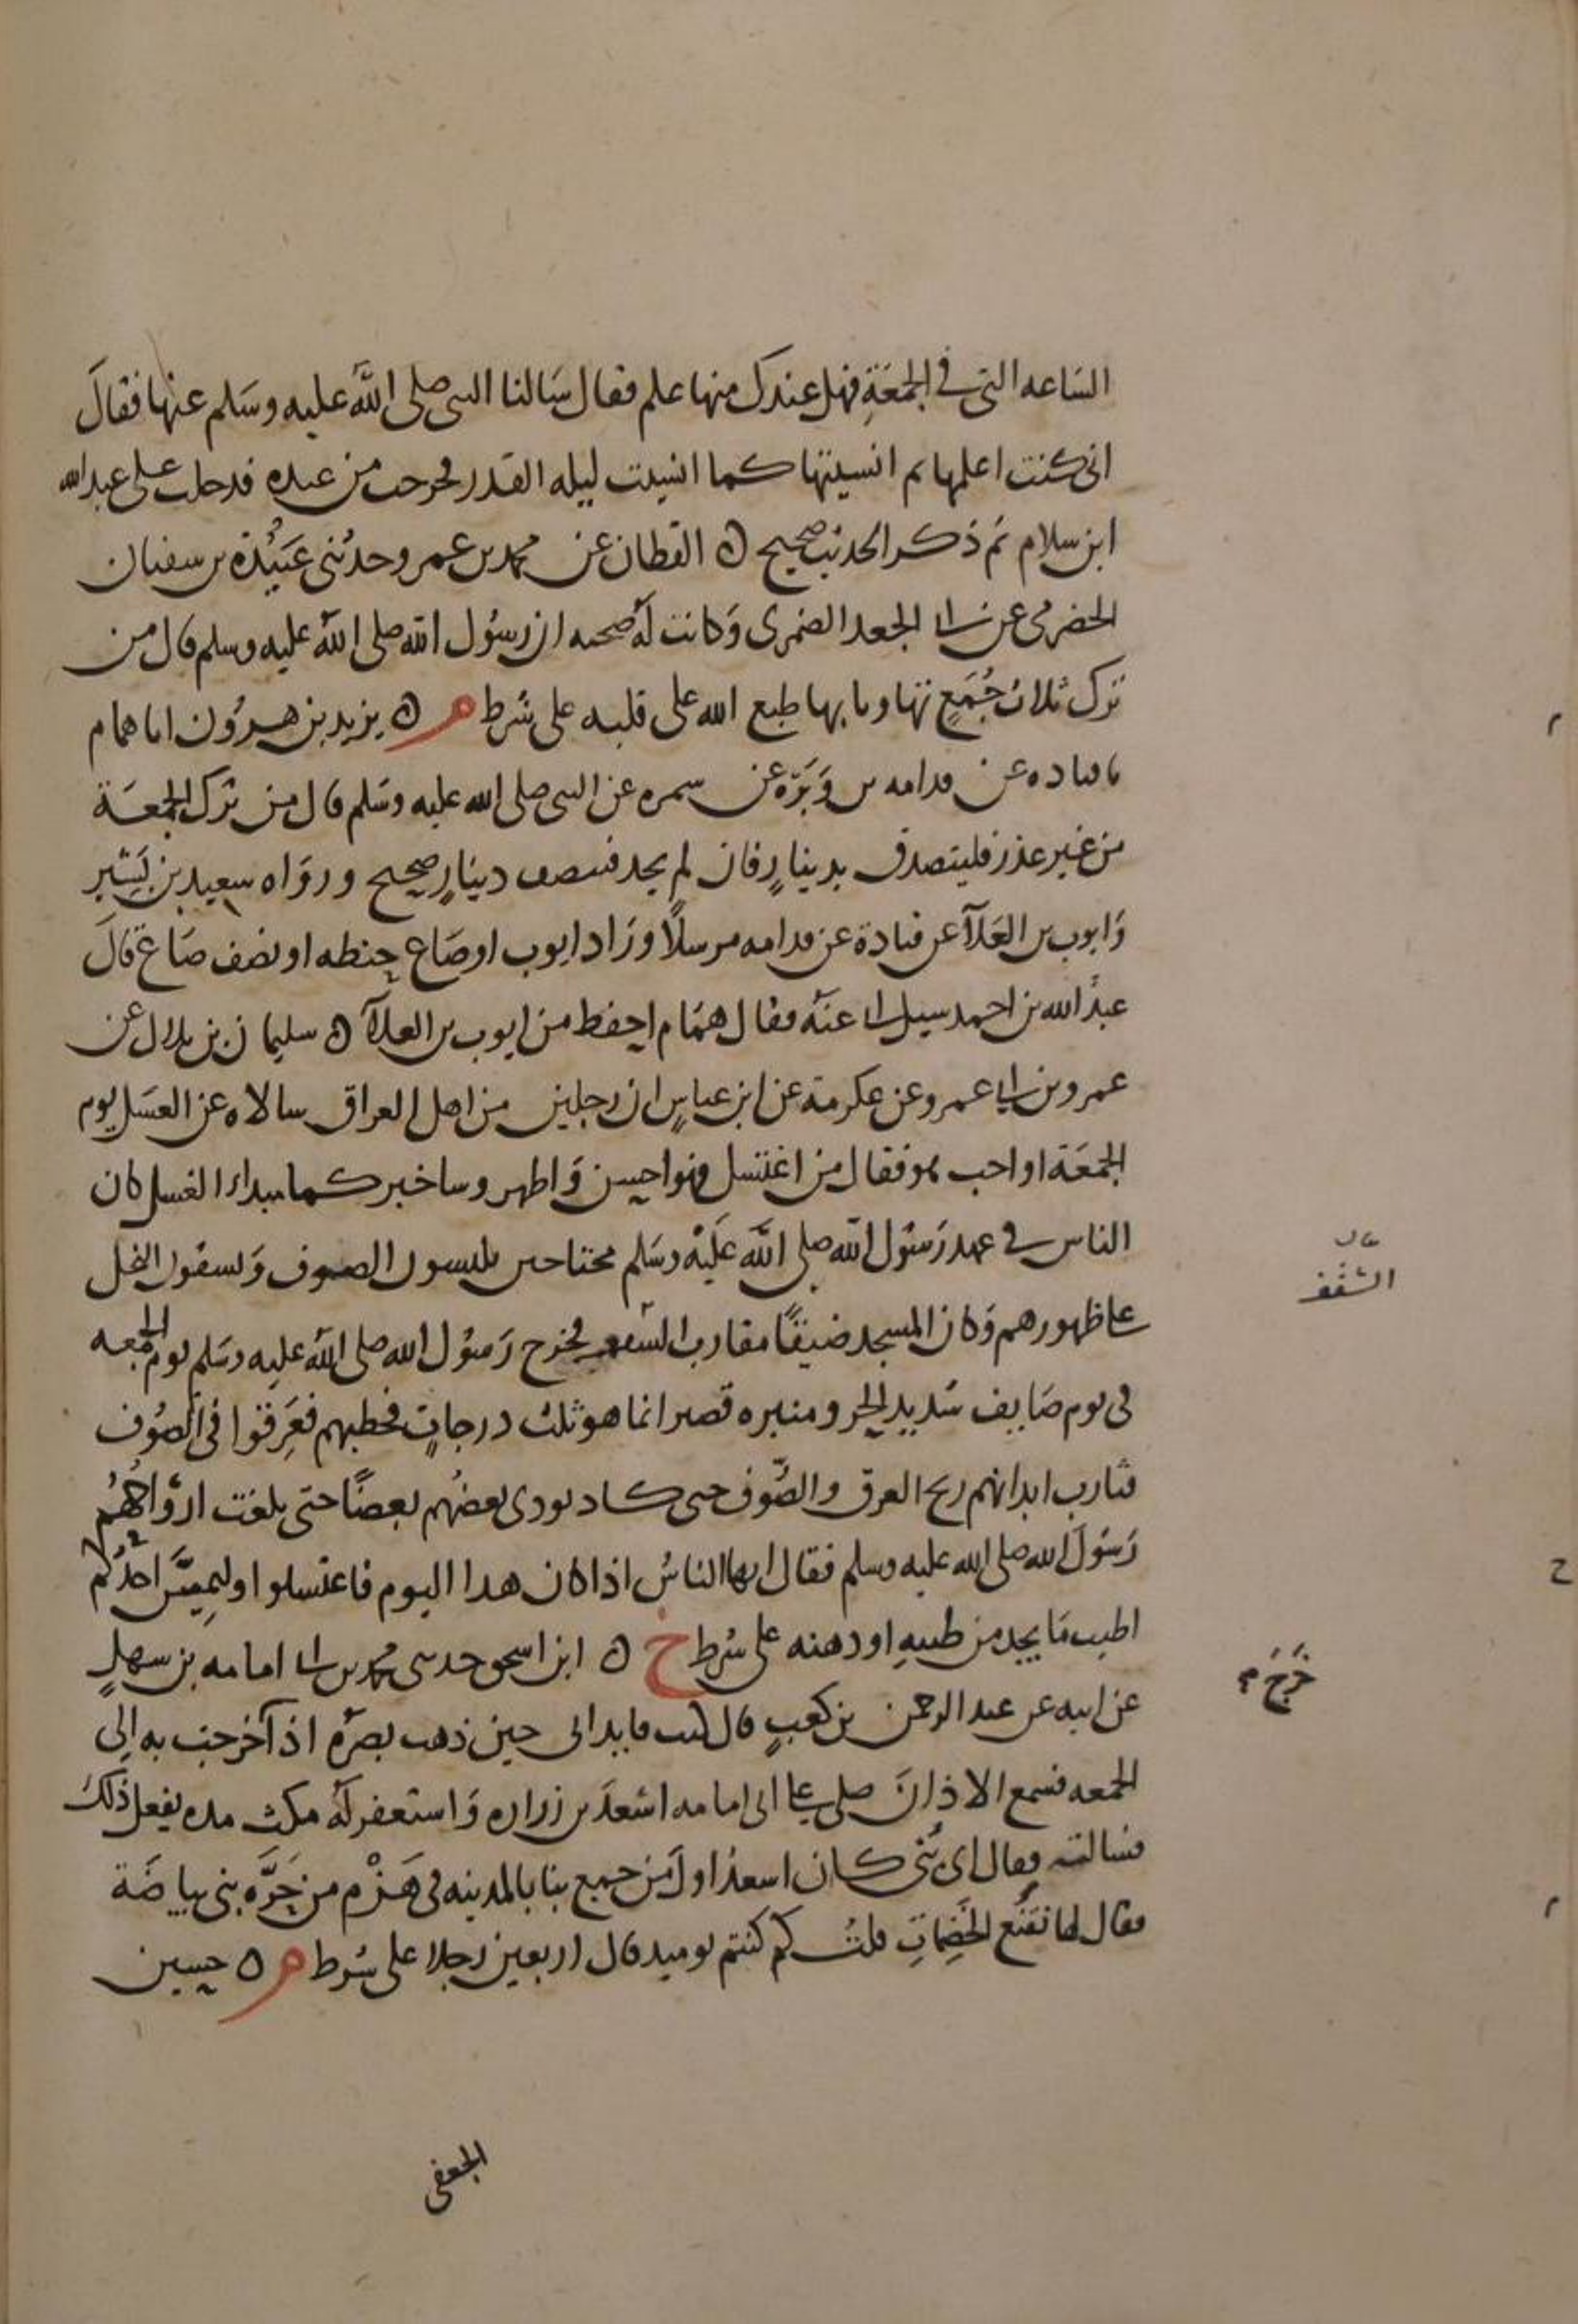 الساعه التى في الجُمعَةِ فهل عندك منها علم فقال سَالنا النبى صلى اللهُ عليه وسَلم عنها فقالَ
انى كنت اعلمها ثم انسيتها كما انسيت ليله القدر فخرجت من عنده فدخلت على عبد الله
ابن سلام ثم ذكر الحديث صحيح ۝ القطان عن محمد بن عمرو حدثنى عَبيْدَة بن سفيان
الحضرمي عن ابى الجعد الضمرى وَكانت لهُ صحبه ان رسُول الله صلى اللهُ عليه وسلم قال من
ترك ثلاث جُمَعٍ تهاونا بها طبع الله على قلبه على شرط م ۝ يزيد بن هـرون انا همام
نا قتاده عن قدامه بن وَبَرَة عن سمره عن النبى صلى الله عليه وسَلم قال من ترك الجمعَة
من غير عذر فليتصدق بدينارٍ فان لم يجد فنصف دينارٍ صحيح ورواه سعيد بن بَشير
وَايوب بن العَلآ عن قتادة عن قدامه مرسلاً وزَاد ايوب او صَاع حنطه او نصف صَاع قالَ
عبدُ الله بن احمد سيل ابى عنهُ فقال همّام احفظ من ايوب بن العلآ ۝ سليمان بن بلال عن
عمرو بن ابى عمرو عن عكرمة عن ابن عباسٍ ان رجلين من اهل العراق سالاه عن الغسَل يوم
الجمعَة او اجب هو فقال من اغتسل فهو احسن وَاطهر وساخبركما بماذا الغسل كان
الناس في عهد رَسُول الله صلى اللهُ عَليْه وسَلم محتاجين يلبسون الصوف وَيسقون النخل
على ظهورهم وَكان المسجد ضيقًا مقارب السقف فخرج رَسُول الله صلى اللهُ عليه وسَلم يوم الجمعه
فى يوم صَايف شديد الحر ومنبره قصير انما هو ثلث درجاتٍ فخطبهم فعَرِقوا فى الصُوف
فثارت ابدانهم ريح العرق والصُّوف حتى كاد يوذى بعضُهم بعضًا حتى بلغت ارْوَاحُهُمْ
رَسُولَ الله صلى الله عليه وسلم فقال ايها الناسُ اذا كان هذا اليوم فاغتسلوا وليمِسَّ احدُكم
اطيب مَا يجد من طيبهِ او دهنه على شرط خ ۝ ابن اسحق حدثنى محمد بن ابى امامه بن سهلٍ
عن ابيه عن عبد الرحمن بن كعبٍ قال كنت قايد ابى حين ذهب بصرُه اذا خرجت به الى
الجمعه فسمع الاذانَ صلى على ابى امامه اسْعدَ بن زراره وَاستغفر لهُ مكث مده يفعل ذلك
فسالته فقال اى بُنى كان اسعدُ اولَ من جمع بنا بالمدينه فى هَزْم من حَرَّه بنى بياضَة
يقال لها نقيُع الخَضِماتِ قلتُ كم كنتم يوميذ قال اربعين رجلا على شرط م ۝ حسين
الجعفى
السَّقف
خَرَجَ